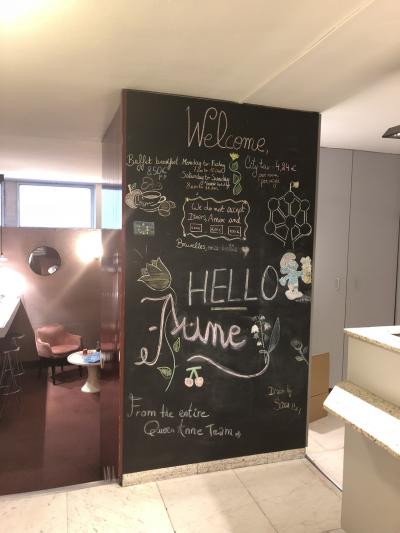 Welcome,
Buffet breakfast
8,50€
P.P
Monday to Friday
Saturday to Sunday
City tax 4,24€
per room
per night
We do not accept
Diners, Amex and
Bruxelles, ma belle
HELLO
June
From the entire
Queen Anne Team
Drawn by